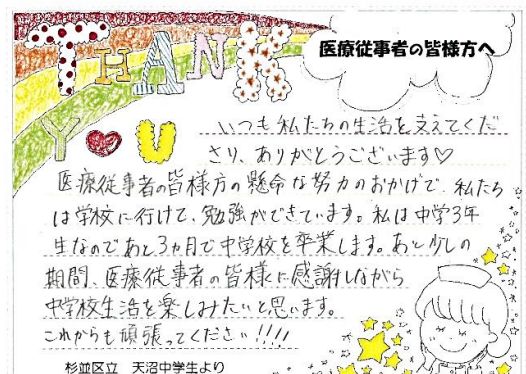 THANK
Y♥U
医療従事者の皆様方へ
いつも私たちの生活を支えてくだ
さり、ありがとうございます♡
医療従事者の皆様方の懸命な努力のおかげで、私たち
は学校に行けて、勉強ができています。私は中学3年
生なのであと3ヵ月で中学校を卒業します。あと少しの
期間、医療従事者の皆様に感謝しながら
中学校生活を楽しみたいと思います。
これからも頑張ってください!!!!
杉並区立 天沼中学生より